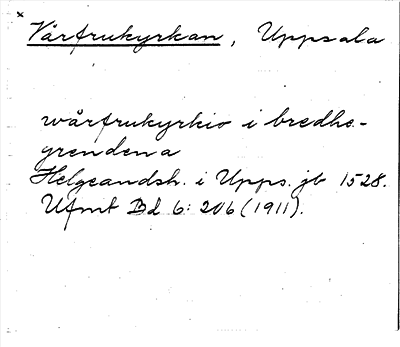 × Vårfrukyrkan, Uppsala
wårfrukyrkio i bredhe-
grendena
Helgeandsh. i Upps. jb 1528.
Ufmt Bd 6: 206 (1911).